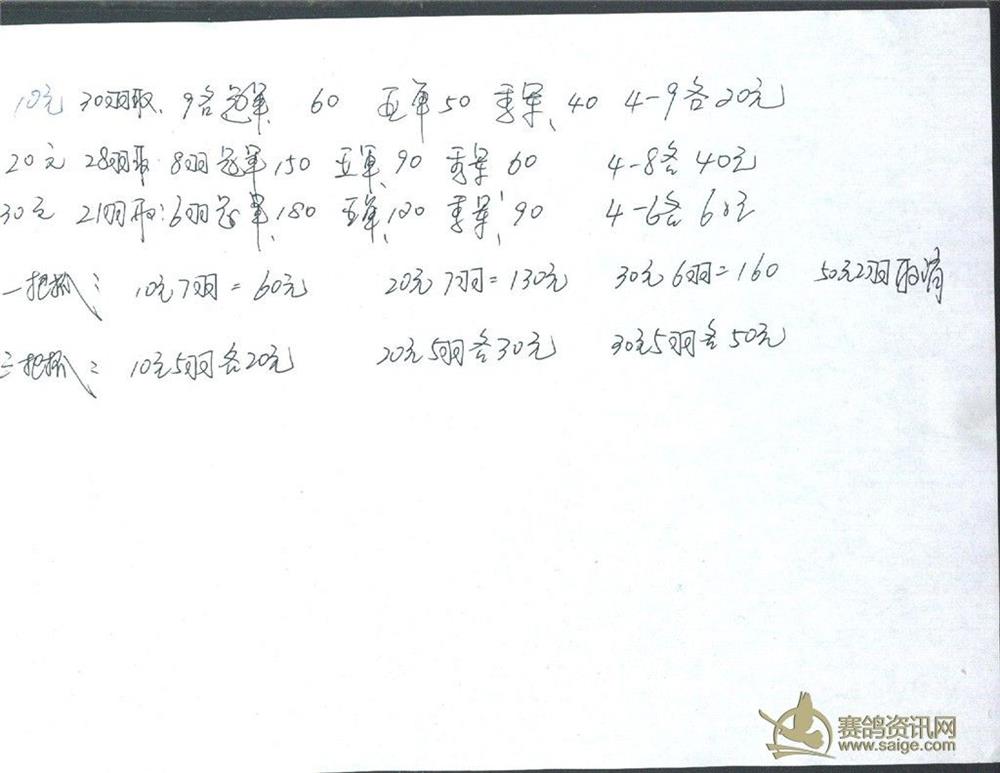 10元 30羽取、9名冠军、60 亚军50 季军、40 4-9各20元
20元 28羽取 8羽冠军、150 亚军、90 季军60 4-8各40元
30元 21羽取:6羽冠军、180 亚军、120 季军、90 4-6各60元
一把抓: 10元7羽=60元 20元7羽=130元 30元6羽=160 50元2羽取消
三把抓: 10元5羽各20元 20元5羽各30元 30元5羽各50元
赛鸽资讯网
www.saige.com